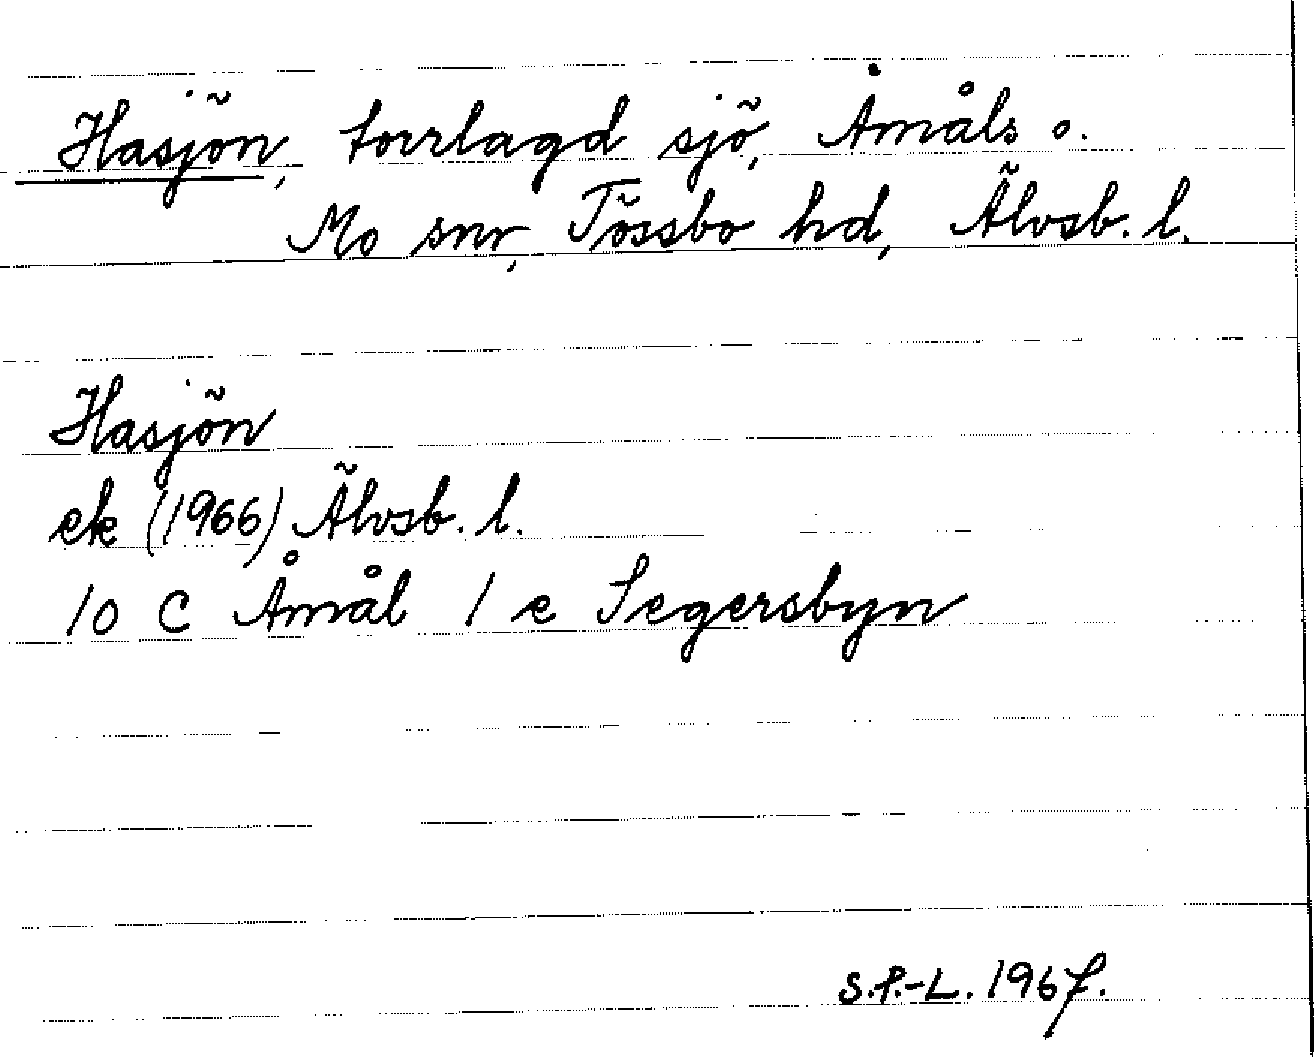 Hasjön, torrlagd sjö, Åmåls o.
Mo snr, Tössbo hd, Älvsb. l.
Hasjön
ek (1966) Älvsb. l.
10 C Åmål 1 e Segersbyn
S.F.-L. 1967.